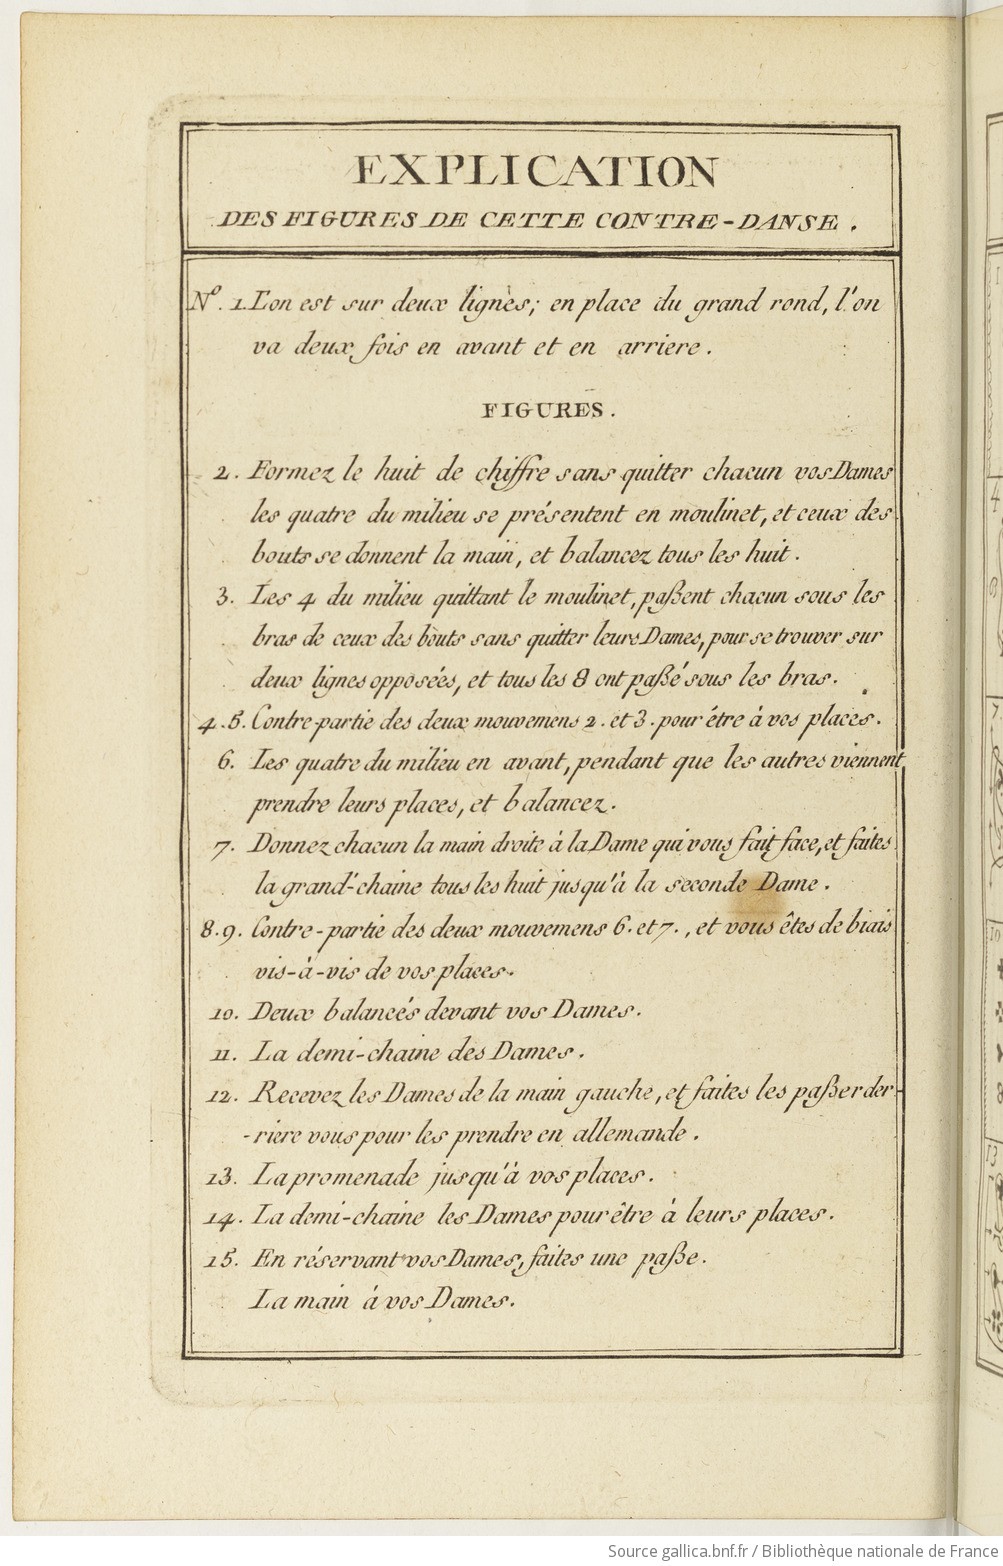 EXPLICATION
DES FIGURES DE CETTE CONTRE-DANSE.
Nº. 1. Lon est sur deux lignes; en place du grand rond, l'on
va deux fois en avant et en arriere.
FIGURES.
2. Formez le huit de chiffre sans quitter chacun vos Dames
les quatre du milieu se présentent en moulinet, et ceux des
bouts se donnent la main, et balancez tous les huit.
3. Les 4 du milieu quittant le moulinet, paßent chacun sous les
bras de ceux des bouts sans quitter leurs Dames, pour se trouver sur
deux lignes opposées, et tous les 8 ont paßé sous les bras.
4.5. Contre-partie des deux mouvemens 2. et 3. pour étre à vos places.
6. Les quatre du milieu en avant, pendant que les autres viennent
prendre leurs places, et balancez.
7. Donnez chacun la main droite à la Dame qui vous fait face, et faites
la grand'-chaine tous les huit jusqu'à la seconde Dame.
8.9. Contre-partie des deux mouvemens 6. et 7., et vous êtes de biais
vis-à-vis de vos places.
10. Deux balancés devant vos Dames.
11. La demi-chaine des Dames.
12. Recevez les Dames de la main gauche, et faites les paßer der-
-riere vous pour les prendre en allemande.
13. La promenade jusqu'à vos places.
14. La demi-chaine les Dames pour être à leurs places.
15. En réservant vos Dames, faites une paße.
La main à vos Dames.
Source gallica.bnf.fr / Bibliothèque nationale de France